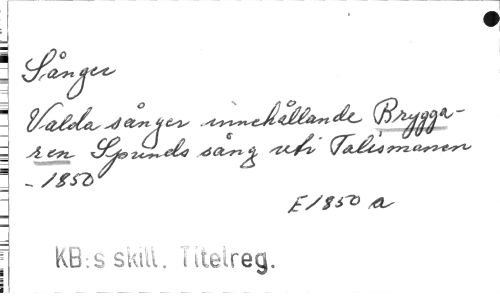 Sånger
Valda sånger innehållande Brygga-
ren Spunds sång uti Talismanen
- 1850
E 1850 a
KB:s skill. Titelreg.